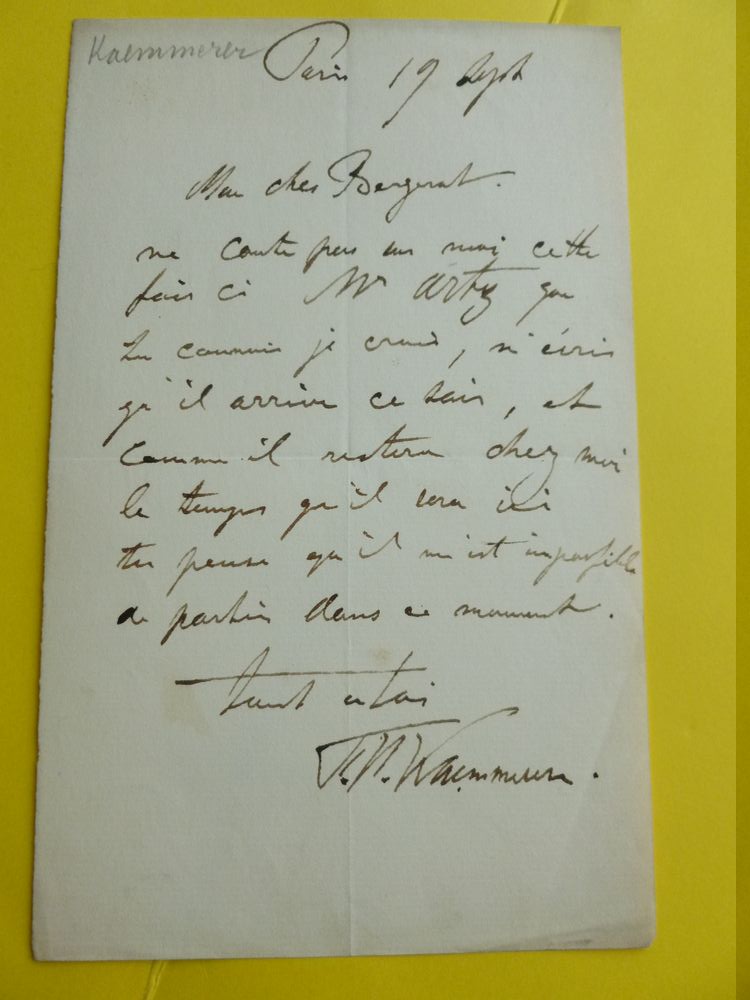 Kaemmerer
Paris 19 Sept
Mon cher Bergerat.
ne compte pas sur moi cette
fois ci Mr Artz que
tu connais je crois, m'écris
qu'il arrive ce soir, et
comme il restera chez moi
le temps qu'il sera ici
tu pense qu'il m'est impossible
de partir dans ce moment.
tout à toi
F. H. Kaemmerer.